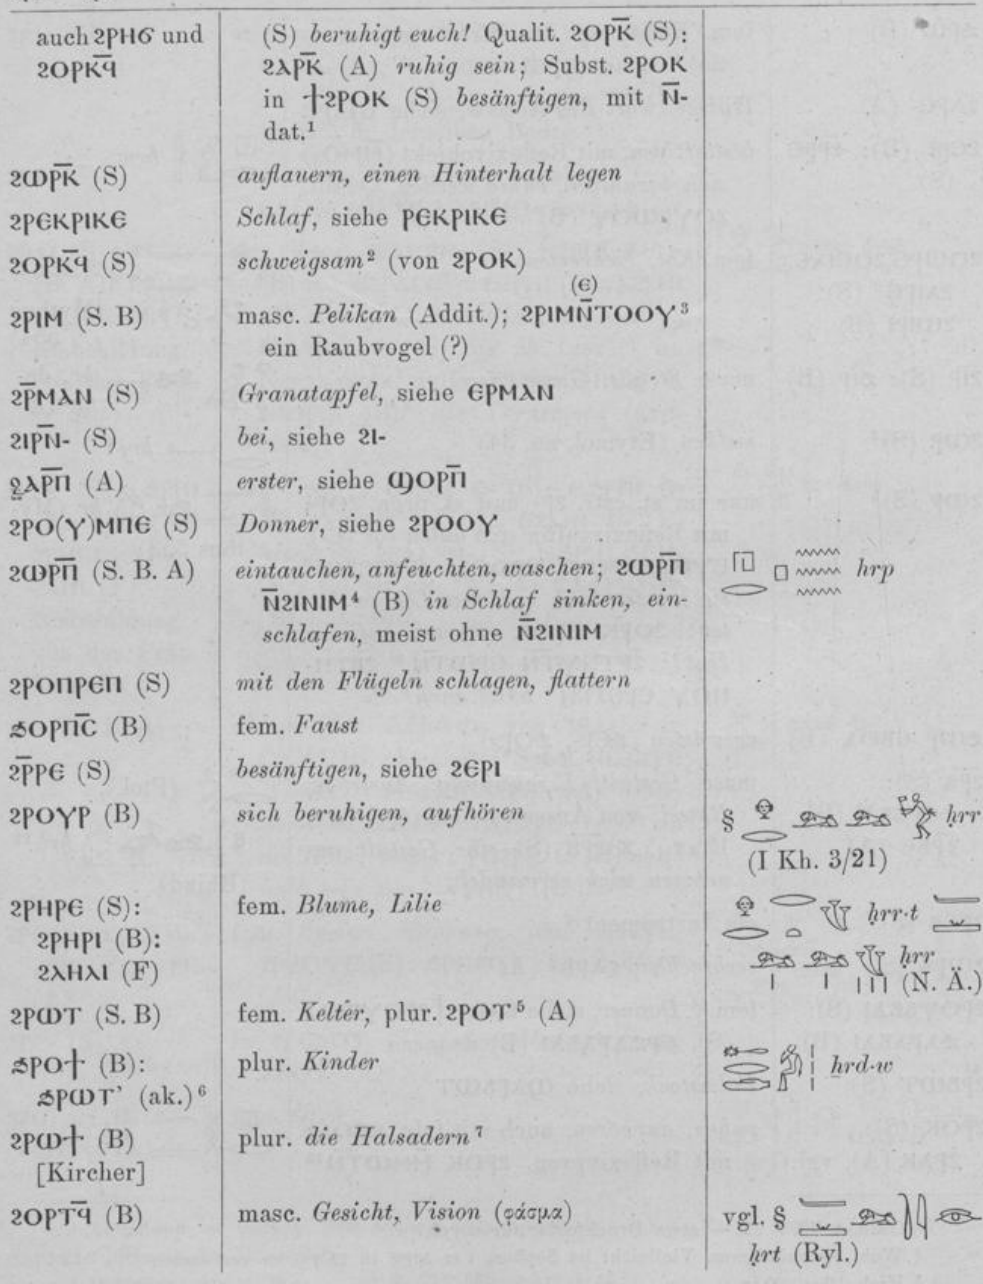 auch ϩⲣⲏϭ und (S) beruhigt euch! Qualit. ϩⲟⲣⲕ̅ (S):
ϩⲟⲣⲕϥ̅ ϩⲁⲣⲕ̅ (A) ruhig sein; Subst. ϩⲣⲟⲕ
in ϯϩⲣⲟⲕ (S) besänftigen, mit ⲛ̅-
dat.¹
ϩⲱⲣⲕ̅ (S) auflauern, einen Hinterhalt legen
ϩⲣⲉⲕⲣⲓⲕⲉ Schlaf, siehe ⲣⲉⲕⲣⲓⲕⲉ
ϩⲟⲣⲕϥ̅ (S) schweigsam² (von ϩⲣⲟⲕ)
(ⲉ)
ϩⲣⲓⲙ (S. B) masc. Pelikan (Addit.); ϩⲣⲓⲙⲛ̅ⲧⲟⲟⲩ³
ein Raubvogel (?)
ϩⲣ̅ⲙⲁⲛ (S) Granatapfel, siehe ⲉⲣⲙⲁⲛ
ϩⲓⲣⲛ̅- (S) bei, siehe ϩⲓ-
ⳉⲁⲣⲡ̅ (A) erster, siehe ϣⲟⲣⲡ̅
ϩⲣⲟ(ⲩ)ⲙⲡⲉ (S) Donner, siehe ϩⲣⲟⲟⲩ
ϩⲱⲣⲡ̅ (S. B. A) eintauchen, anfeuchten, waschen; ϩⲱⲣⲡ̅ hrp
ⲛ̅ϩⲓⲛⲓⲙ⁴ (B) in Schlaf sinken, ein-
schlafen, meist ohne ⲛ̅ϩⲓⲛⲓⲙ
ϩⲣⲟⲡⲣⲉⲡ (S) mit den Flügeln schlagen, flattern
ϧⲟⲣⲡⲥ̅ (B) fem. Faust
ϩⲣ̅ⲣⲉ (S) besänftigen, siehe ϩⲉⲣⲓ
ϩⲣⲟⲩⲣ (B) sich beruhigen, aufhören § hrr
(I Kh. 3/21)
ϩⲣⲏⲣⲉ (S): fem. Blume, Lilie hrr·t
ϩⲣⲏⲣⲓ (B): hrr
ϩⲗⲏⲗⲓ (F) (N. Ä.)
ϩⲣⲱⲧ (S. B) fem. Kelter, plur. ϩⲣⲟⲧ⁵ (A)
ϧⲣⲟϯ (B): plur. Kinder hrd·w
ϧⲣⲱⲧ' (ak.)⁶
ϩⲣⲱϯ (B) plur. die Halsadern⁷
[Kircher]
ϩⲟⲣⲧϥ̅ (B) masc. Gesicht, Vision (φάσμα) vgl. §
hrt (Ryl.)